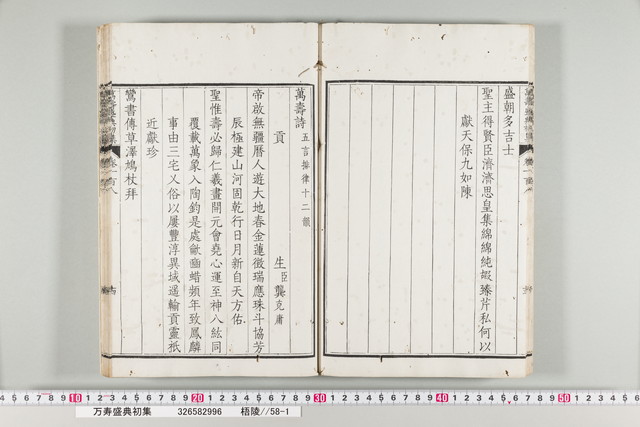 盛朝多吉士
聖主得賢臣濟濟思皇集綿綿純嘏臻芹私何以
獻天保九如陳
萬壽詩 五言排律十二韻
貢 生臣龔克庸
帝啟無疆曆人遊大地春金蓮徵瑞應珠斗協芳
辰極建山河固乾行日月新自天方佑
聖惟壽必歸仁羲畫開元會堯心運至神八紘同
覆載萬象入陶鈞是處歌豳蜡頻年致鳳麟
事由三宅乂俗以屢豐淳異域遥輸貢靈祇
近獻珍
鸞書傳草澤鳩杖拜
万寿盛典初集 326582996 梧陵//58-1